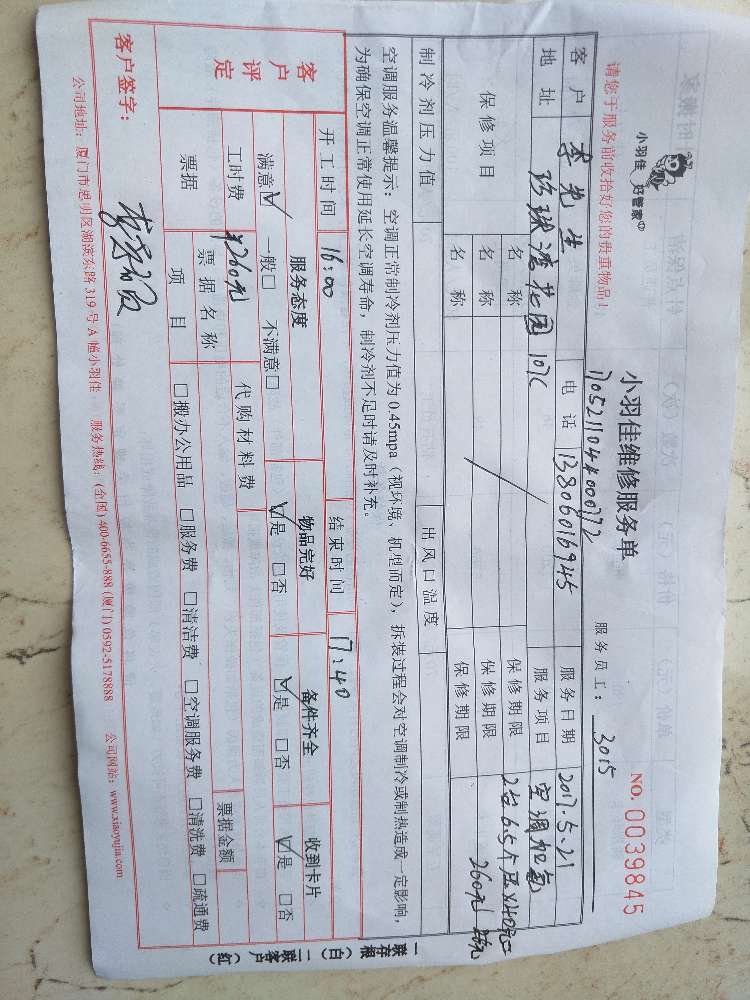 小羽佳 好管家
小羽佳维修服务单
NO. 0039845
请您于服务前收拾好您的贵重物品!
服务员工: 3015
客户 李先生 电话 13806016945 服务日期 2017.5.21
地址 珍珠湾花园 107C 服务项目 空调加氟
保修项目 名称 保修期限
名称 保修期限
名称 保修期限 260元
制冷剂压力值 出风口温度
空调服务温馨提示:空调正常制冷剂压力值为 0.45mpa(视环境、机型而定),拆装过程会对空调制冷或制热造成一定影响,
为确保空调正常使用延长空调寿命,制冷剂不足时请及时补充。
客户评定 开工时间 16:00 结束时间 17:40
服务态度 物品完好 备件齐全 收到卡片
满意☑ 一般□ 不满意□ ☑是 □否 ☑是 □否 ☑是 □否
工时费 ¥260元 代购材料费
票据 票据名称 票据金额
项目 □搬办公用品 □服务费 □清洁费 □空调服务费 □清洗费 □疏通费
客户签字:
公司地址:厦门市思明区湖滨东路 319 号 A 幢小羽佳 服务热线:(全国) 400-6655-888 (厦门) 0592-5178888 公司网站:www.xiaoyujia.com
一联存根(白) 二联客户(红)